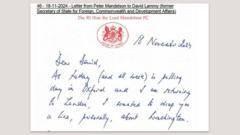 46 - 18-11-2024 - Letter from Peter Mandelson to David Lammy (former
Secretary of State for Foreign, Commonwealth and Development Affairs)
The Rt Hon the Lord Mandelson PC
18 November 2024
Dear David,
As Friday (and all week) is polling
day in Oxford and I am returning
to London, I wanted to drop you
a line, personally, about Washington.